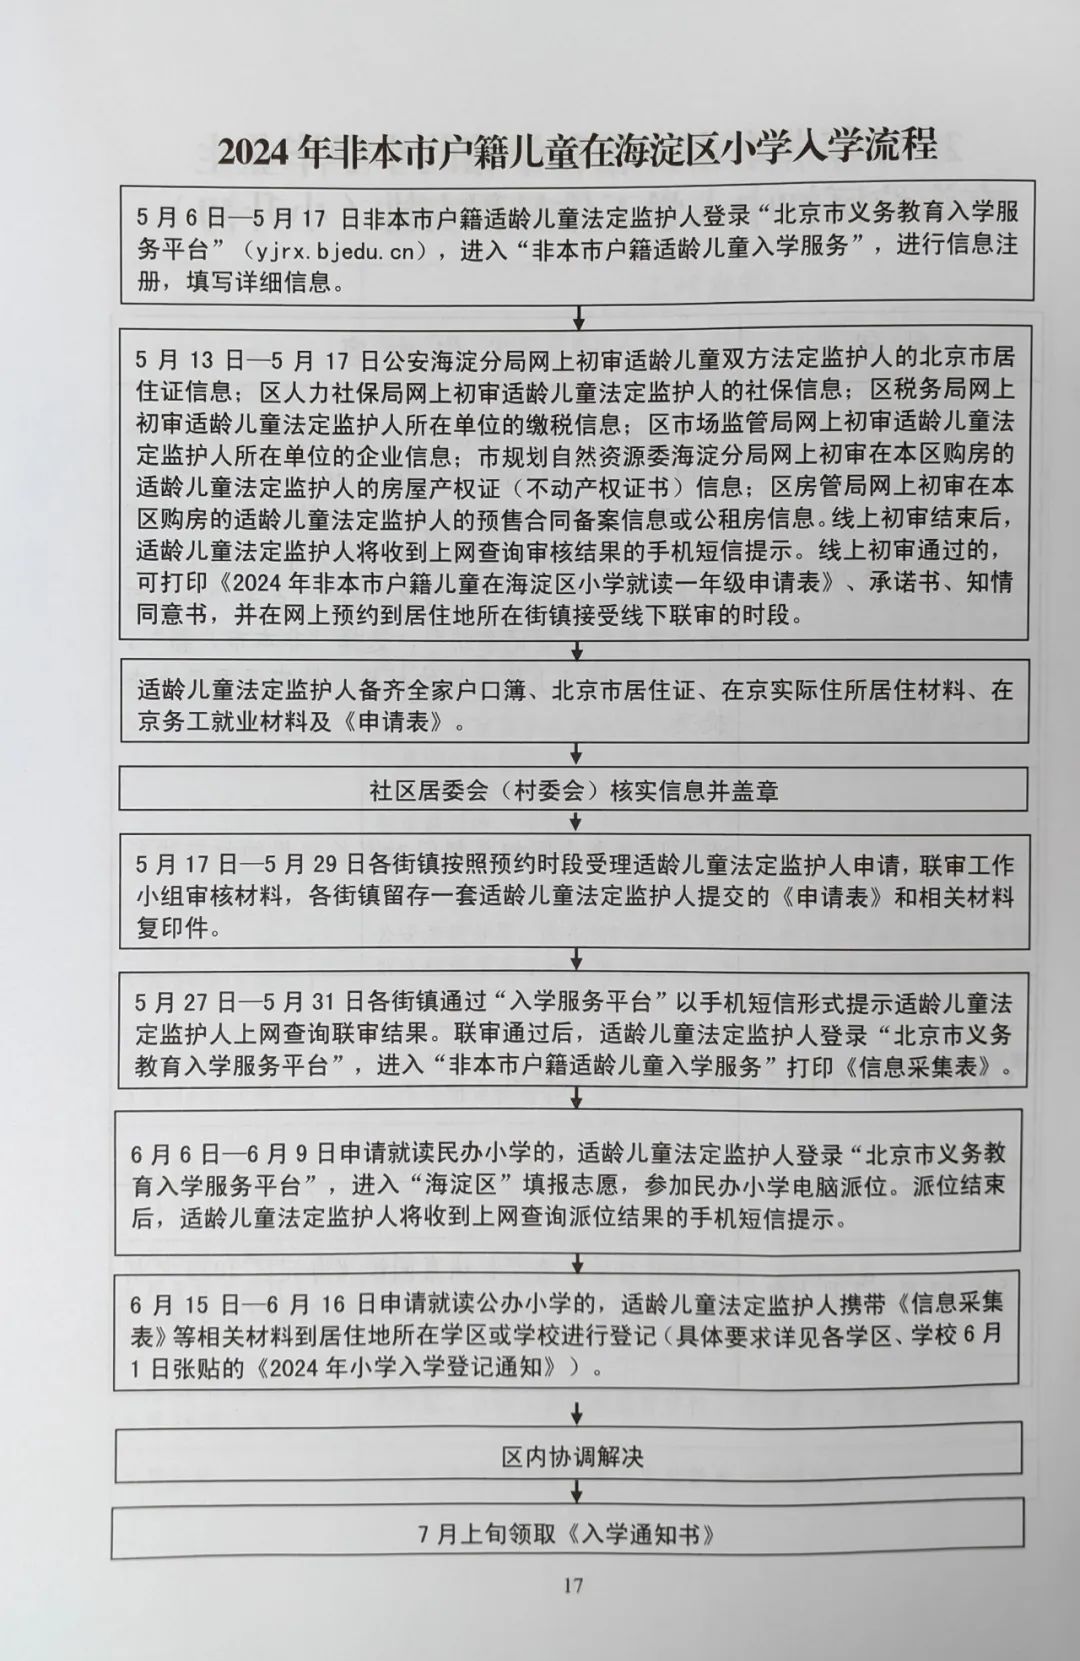 2024 年非本市户籍儿童在海淀区小学入学流程
5 月 6 日—5 月 17 日非本市户籍适龄儿童法定监护人登录“北京市义务教育入学服
务平台”（yjrx.bjedu.cn），进入“非本市户籍适龄儿童入学服务”，进行信息注
册，填写详细信息。
5 月 13 日—5 月 17 日公安海淀分局网上初审适龄儿童双方法定监护人的北京市居
住证信息；区人力社保局网上初审适龄儿童法定监护人的社保信息；区税务局网上
初审适龄儿童法定监护人所在单位的缴税信息；区市场监管局网上初审适龄儿童法
定监护人所在单位的企业信息；市规划自然资源委海淀分局网上初审在本区购房的
适龄儿童法定监护人的房屋产权证（不动产权证书）信息；区房管局网上初审在本
区购房的适龄儿童法定监护人的预售合同备案信息或公租房信息。线上初审结束后，
适龄儿童法定监护人将收到上网查询审核结果的手机短信提示。线上初审通过的，
可打印《2024 年非本市户籍儿童在海淀区小学就读一年级申请表》、承诺书、知情
同意书，并在网上预约到居住地所在街镇接受线下联审的时段。
适龄儿童法定监护人备齐全家户口簿、北京市居住证、在京实际住所居住材料、在
京务工就业材料及《申请表》。
社区居委会（村委会）核实信息并盖章
5 月 17 日—5 月 29 日各街镇按照预约时段受理适龄儿童法定监护人申请，联审工作
小组审核材料，各街镇留存一套适龄儿童法定监护人提交的《申请表》和相关材料
复印件。
5 月 27 日—5 月 31 日各街镇通过“入学服务平台”以手机短信形式提示适龄儿童法
定监护人上网查询联审结果。联审通过后，适龄儿童法定监护人登录“北京市义务
教育入学服务平台”，进入“非本市户籍适龄儿童入学服务”打印《信息采集表》。
6 月 6 日—6 月 9 日申请就读民办小学的，适龄儿童法定监护人登录“北京市义务教
育入学服务平台”，进入“海淀区”填报志愿，参加民办小学电脑派位。派位结束
后，适龄儿童法定监护人将收到上网查询派位结果的手机短信提示。
6 月 15 日—6 月 16 日申请就读公办小学的，适龄儿童法定监护人携带《信息采集
表》等相关材料到居住地所在学区或学校进行登记（具体要求详见各学区、学校 6 月
1 日张贴的《2024 年小学入学登记通知》）。
区内协调解决
7 月上旬领取《入学通知书》
17